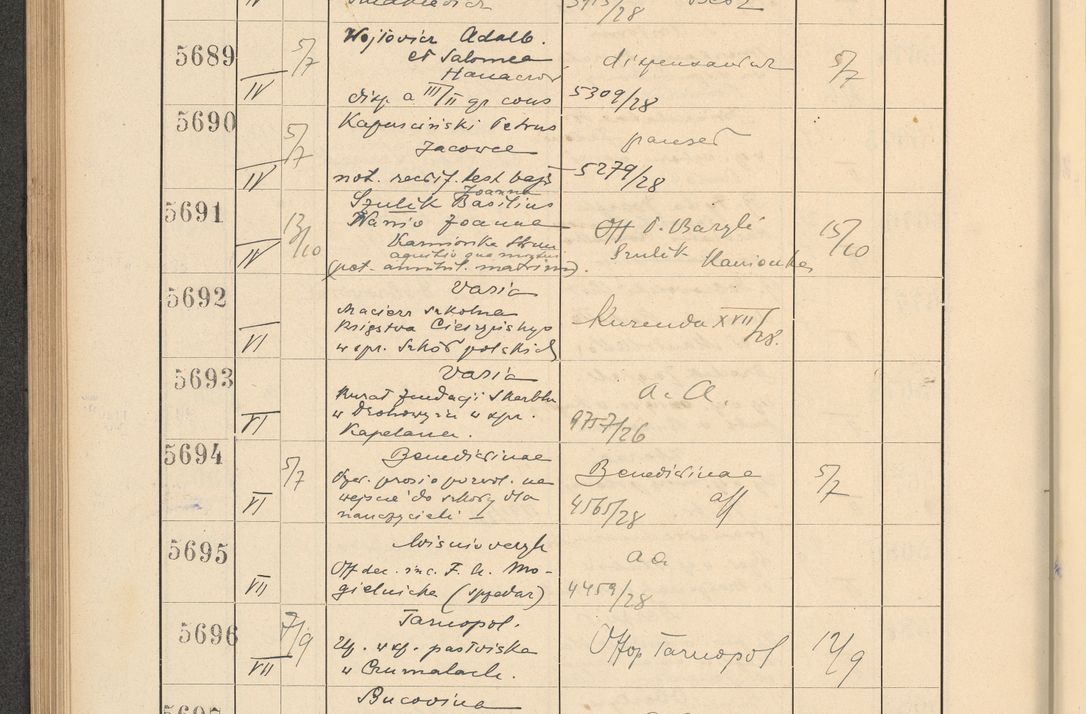 IV
5913/28
5689
IV
5/7
Wojtowicz Adalb.
et Salomea
Hanaczów
disp. a III/II gr cons
dispensantur
5309/28
5/7
5690
IV
5/7
Kapuściński Petrus
Jacovce
not. rectif. test bapt
5279/28
5691
IV
13/10
Joanna
Szulik Basilius
Wańio Joanna
Kamionka Strum
(pet. annul. matrim).
Off P. Bazyli
Szulik Kamionka
15/10
5692
VI
Varia
Macierz szkolna
Księstwa Cieszyńskiego
w spr. szkół polskich
Kurenda XVII/28.
5693
VI
Varia
Kurat fundacji Skarbka
w Drohowyżu w spr.
Kapelana.
a. a.
9757/26
5694
VI
5/7
Benedictinae
prosio pozwol. na
wejście do szkoły dla
nauczycieli
Benedictinae
4565/28
aff
5/7
5695
VII
Wiśniowezyk
Off dec. inc. F. h. Mo-
gielnicke (sprzedaż)
aa
4459/28
5696
VII
7/9
Tarnopol.
w sp. pastwiska
w Czumalach.
Offop Tarnopol
12/9
5697
Bucovina